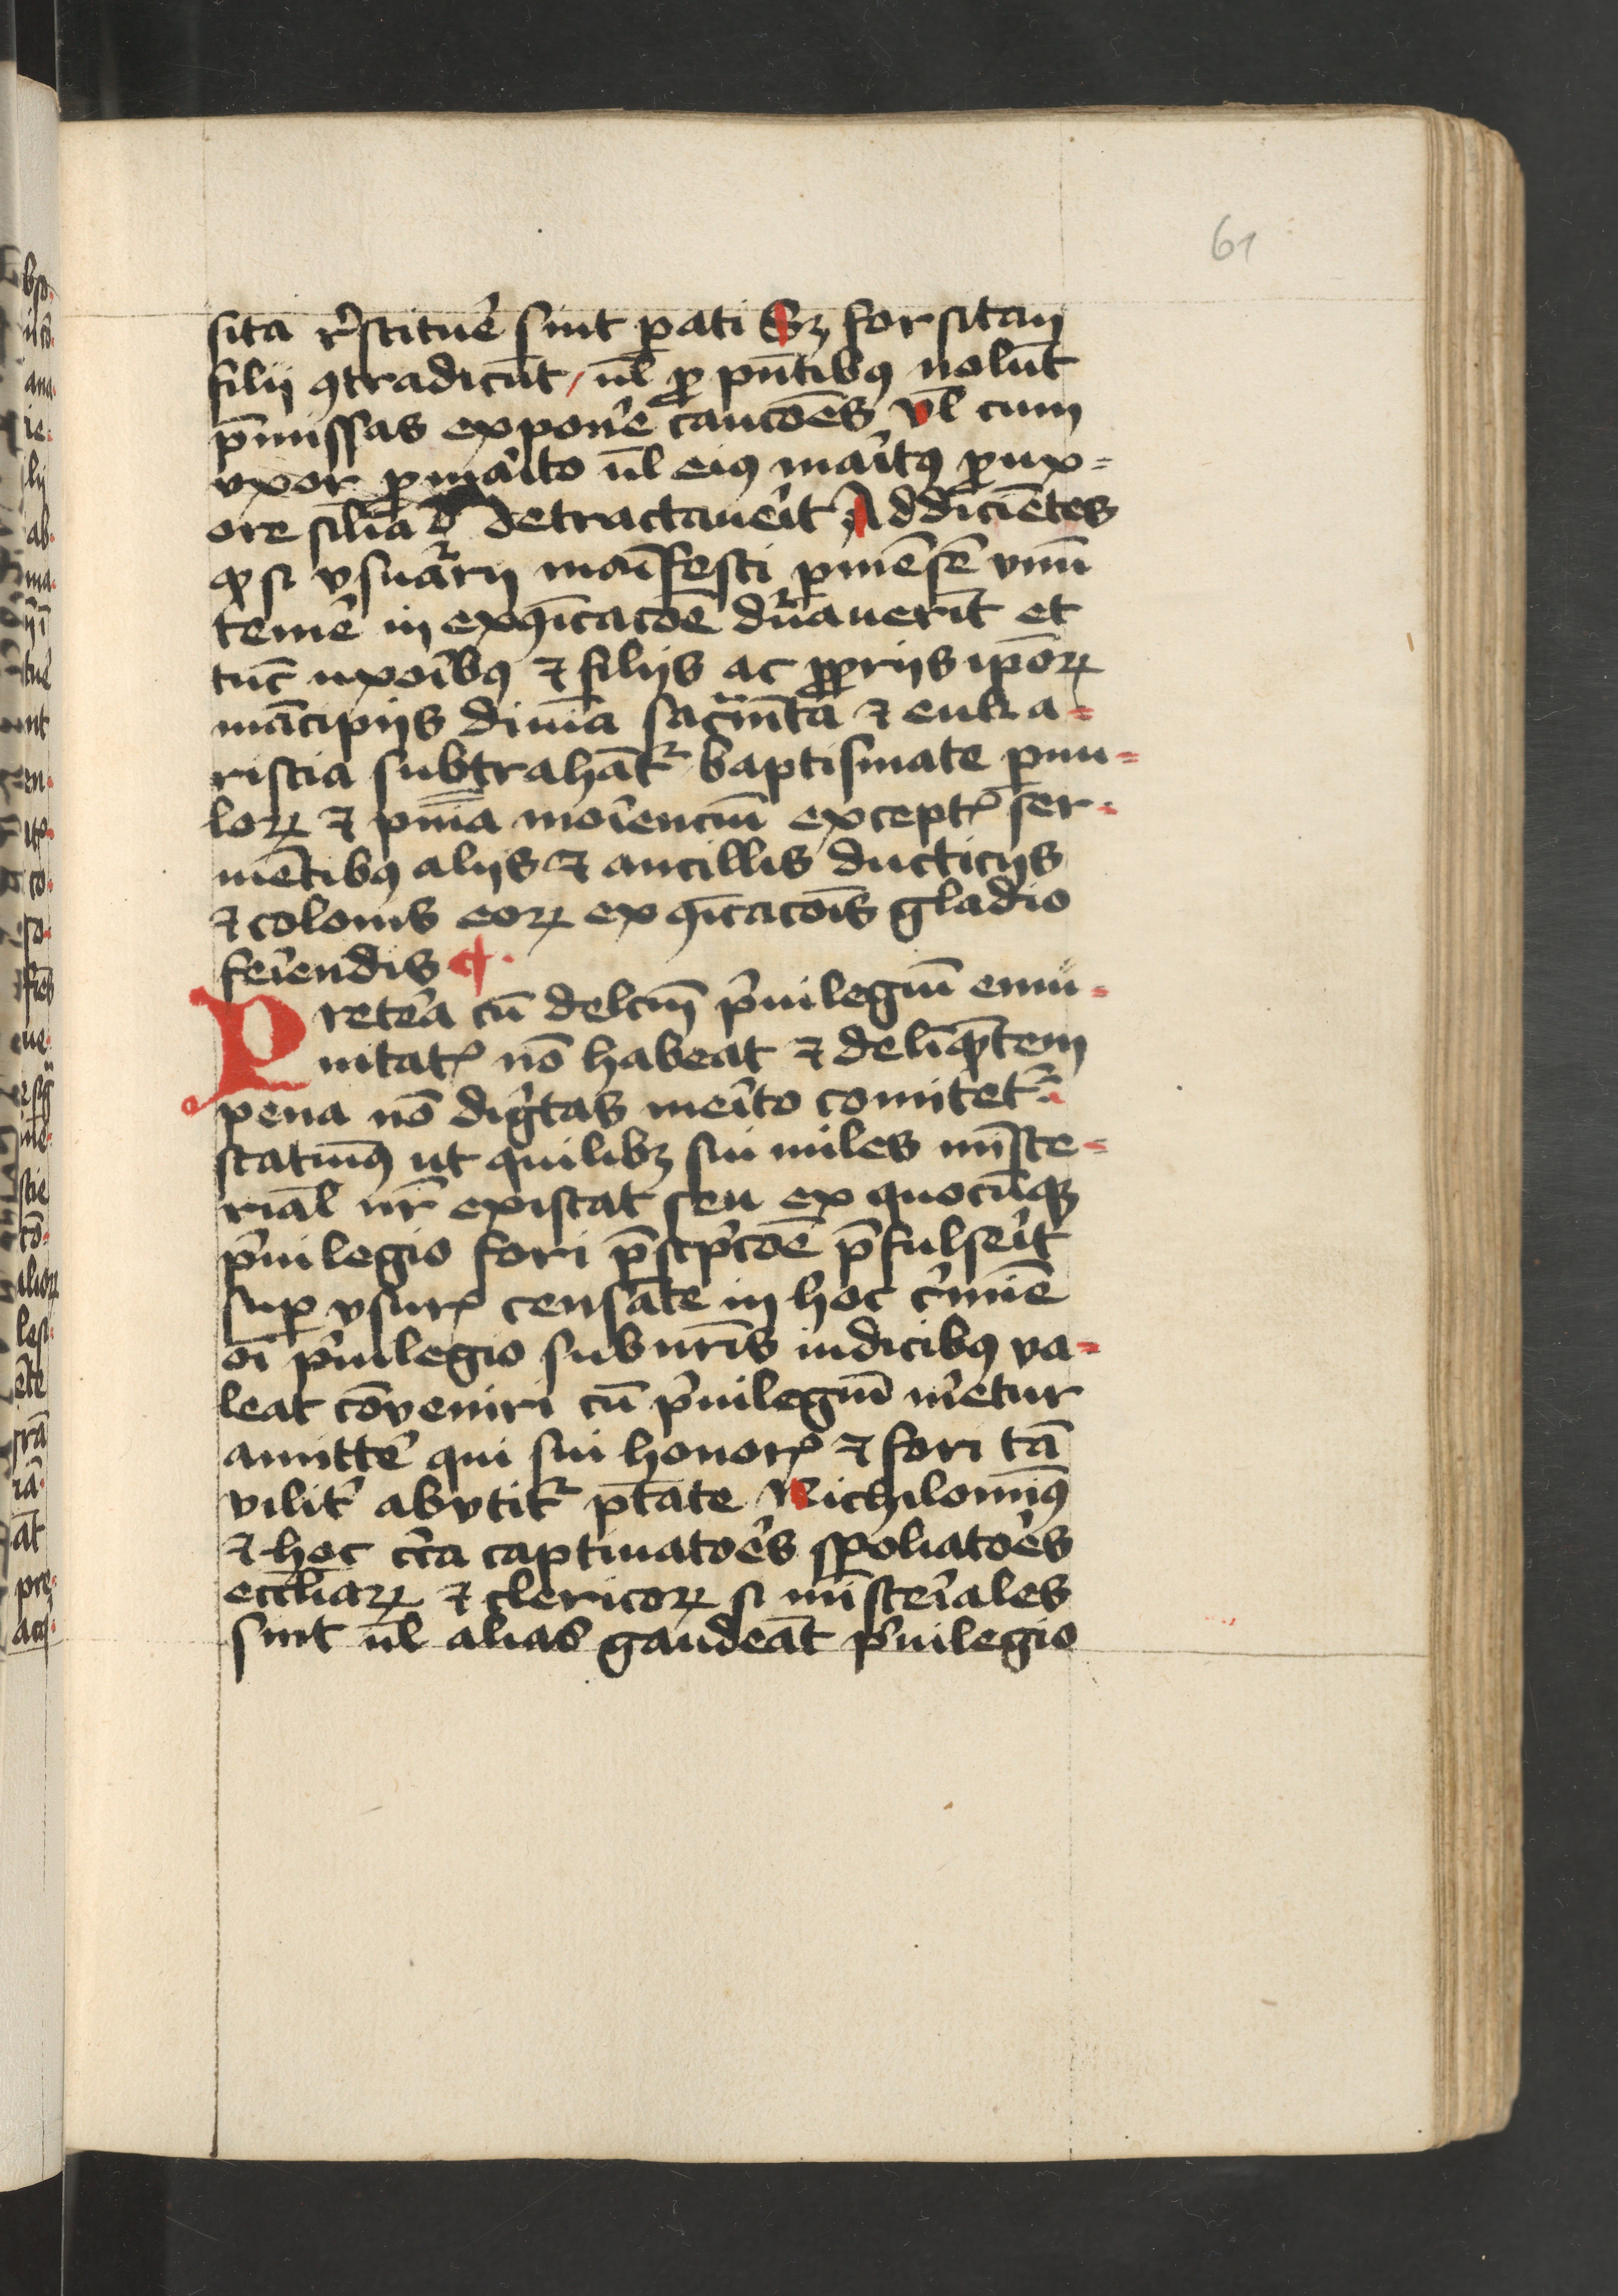 61
sita r̾stituē sint pati Sꝫ forsitan
filii ꝯtradicūt / ul̄ ꝓ pn̄tibꝰ nolūt
p̄missas exponē caucōēs vl̄ cum
vxor ꝓ ma͛ito ul̄ eiꝰ ma͛itꝰ ꝓ ux=
ore sil̄ia detractaue͛it Addiciētes
ꝙ si vsuarii mani̅festi ꝑ mēsē vnū
teme͛ in exꝯīcacōe dūauerīt et
tūc uxo͛ibꝰ ⁊ filijs ac ꝓprijs ip̄oꝝ
mācipijs diuīa sacr̄m̄ta ⁊ euka=
ristia subtrahāt᷑ baptismate puu=
loꝝ ⁊ pn̄ia mo͛iencīu exceptꝭ ser=
uiētibꝰ alijs ⁊ ancillis ducticijs
⁊ colonis eoꝝ exꝯīcacōis gladio
fe͛iendis ¶
Prete͛a cū delc̄m p͛uilegiū emu=
nitatꝭ nō habeat ⁊ deliq̄ntem
pena nō dig͛tas me͛ito comitet᷑
statuimꝰ ut quilibꝫ sui miles mīste=
rial̄ nr̄ existat seu ex quocūqꝫ
p͛uilegio fori p̄scp͛cōe p̄fulse͛it
suꝑ vsurꝭ censāte in hoc c͛mīe
oī p͛uilegio sub nr̄is iudicibꝰ va=
leat cōveniri cū p͛uilegiū m͛etur
amitte͛ qui sui honorꝭ ⁊ fori tā
vilit͛ abvtit᷑ ptāte Nichilominꝰ
⁊ hoc cc͛a captiuato͛es spoliato͛es
eccl̄iaꝝ ⁊ clericoꝝ si miste͛iales
sint ul̄ alias gaudeāt p͛uilegio